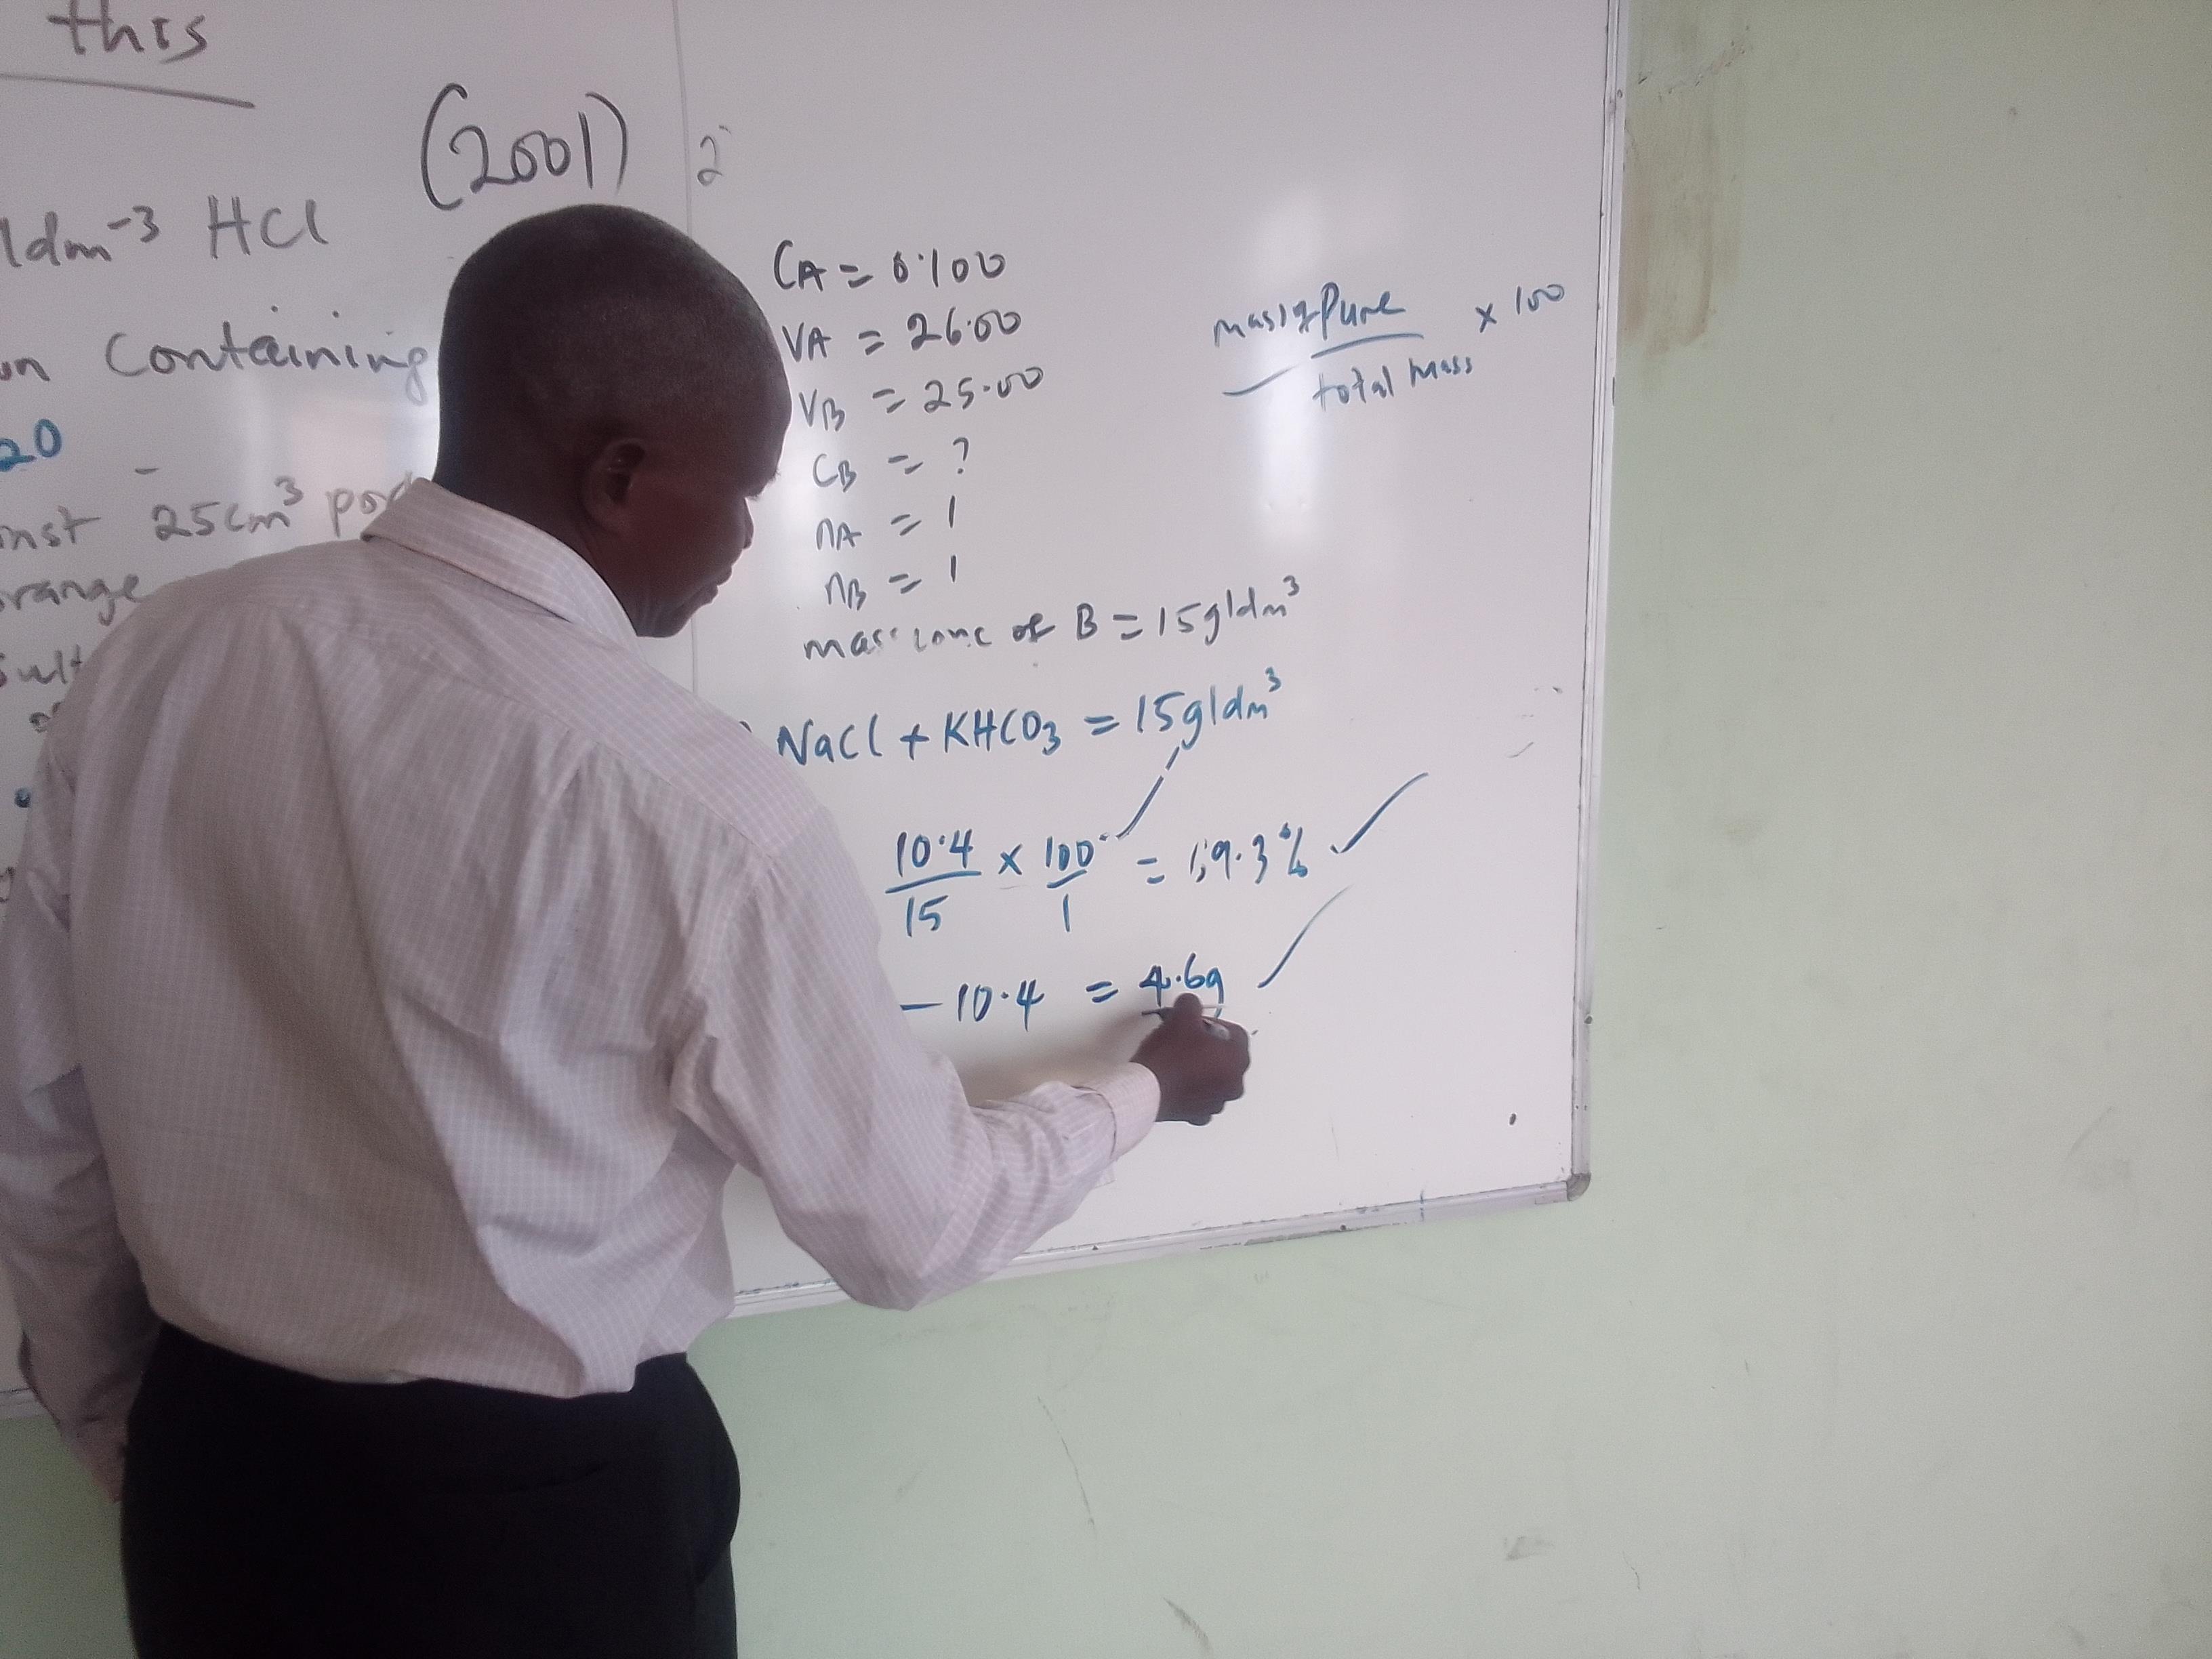 this
(2001)
ldm⁻³ HCl
on Containing
20
inst 25cm³
orange
sult
2
CA = 0.100
VA = 26.00
VB = 25.00
CB = ?
nA = 1
nB = 1
mass conc of B = 15g/dm³
mass of Pure / total mass × 100
NaCl + KHCO₃ = 15g/dm³
10.4/15 × 100/1 = 69.3%
— 10.4 = 4.6g